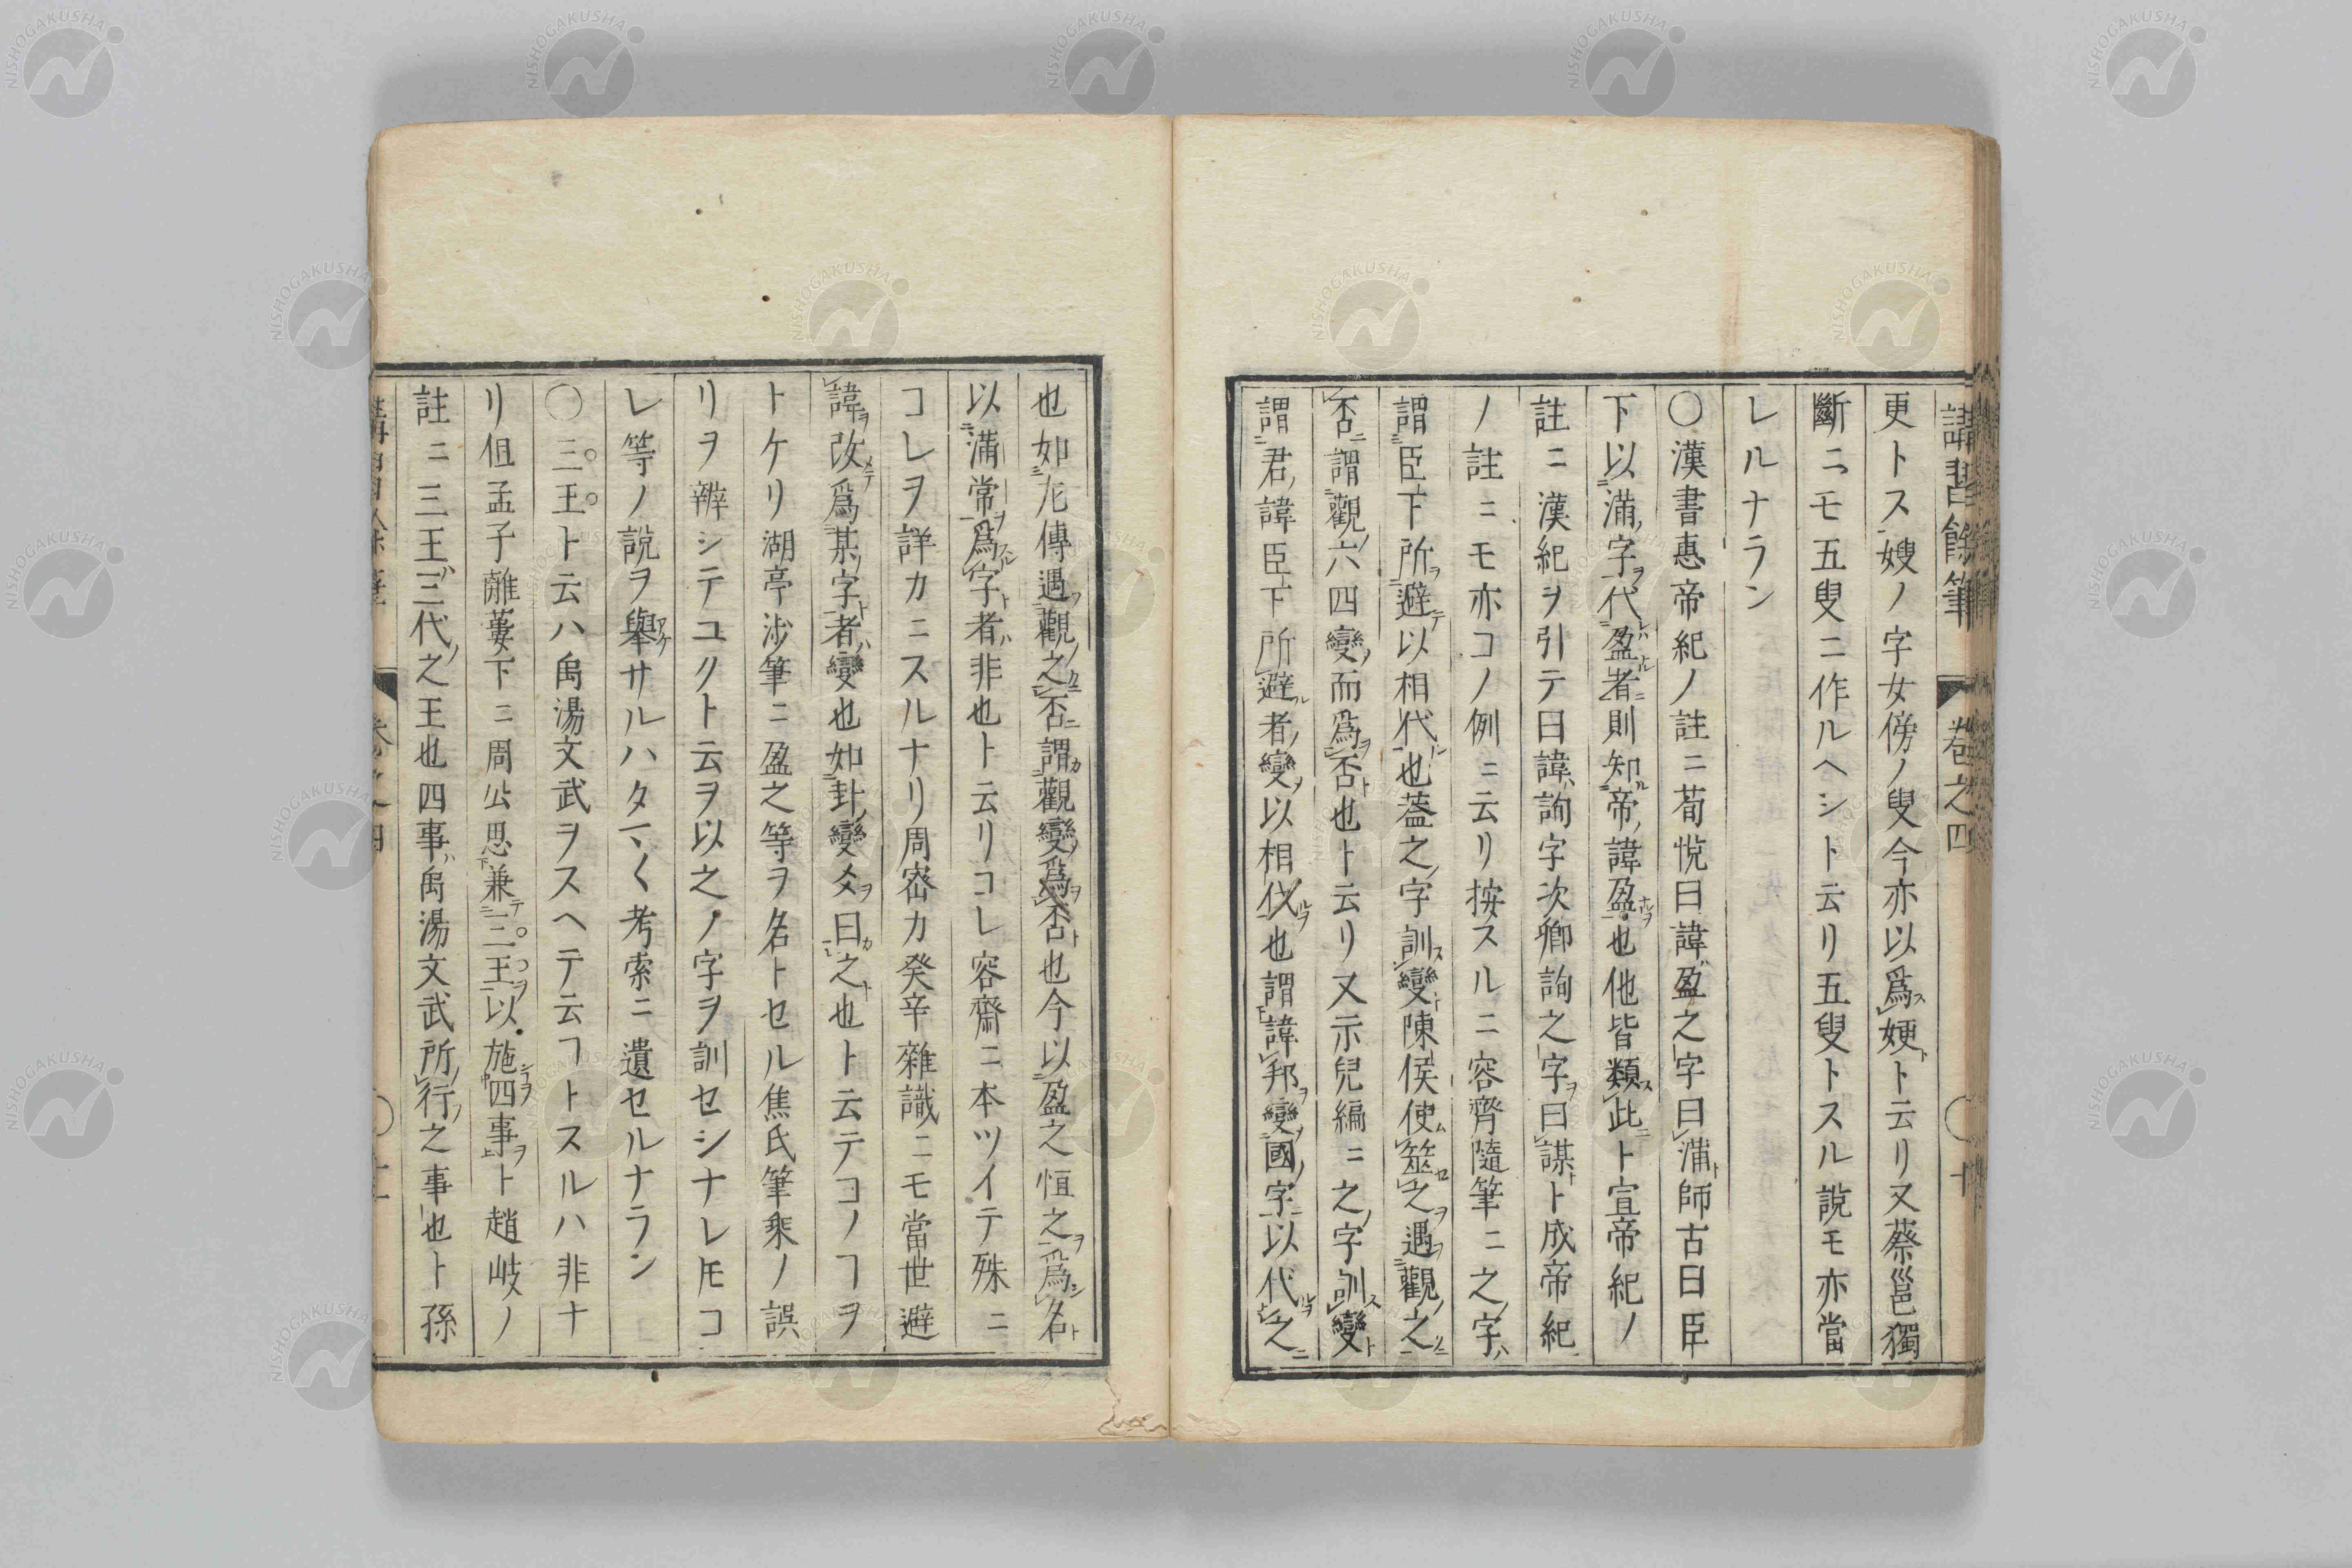 講習餘筆 卷之四 〇十
更トス嫂ノ字女傍ノ叟今亦以爲㛐ト云リ又蔡邕獨
斷ニモ五叟ニ作ルヘシト云リ五叟トスル說モ亦當
レルナラン
〇漢書惠帝紀ノ註ニ荀悅曰諱盈之字曰滿師古曰臣
下以滿字代盈者則知帝諱盈也他皆類此ト宣帝紀ノ
註ニ漢紀ヲ引テ曰諱詢字次卿詢之字曰謀ト成帝紀
ノ註ニモ亦コノ例ニ云リ按スルニ容齊隨筆ニ之字ハ
謂臣下所避以相代也蓋之字訓變陳侯使筮之遇觀之
否謂觀六四變而爲否也ト云リ又示兒編ニ之字訓變
謂君諱臣下所避者變以相代也謂諱邦變國字以代之
也如左傳遇觀之否謂觀變爲否也今以盈之恒之爲名
以滿常爲字者非也ト云リコレ容齋ニ本ツイテ殊ニ
コレヲ詳カニスルナリ周密カ癸辛雜識ニモ當世避
諱改爲某字者變也如卦變爻曰之也ト云テコノヿヲ
トケリ湖亭涉筆ニ盈之等ヲ名トセル焦氏筆乘ノ誤
リヲ辨シテユクト云ヲ以之ノ字ヲ訓セシナレ𪜈コ
レ等ノ說ヲ舉サルハタマ〱考索ニ遺セルナラン
〇三王ト云ハ禹湯文武ヲスヘテ云ヿトスルハ非ナ
リ但孟子離婁下ニ周公思兼三王以施四事ト趙岐ノ
註ニ三王三代之王也四事禹湯文武所行之事也ト孫